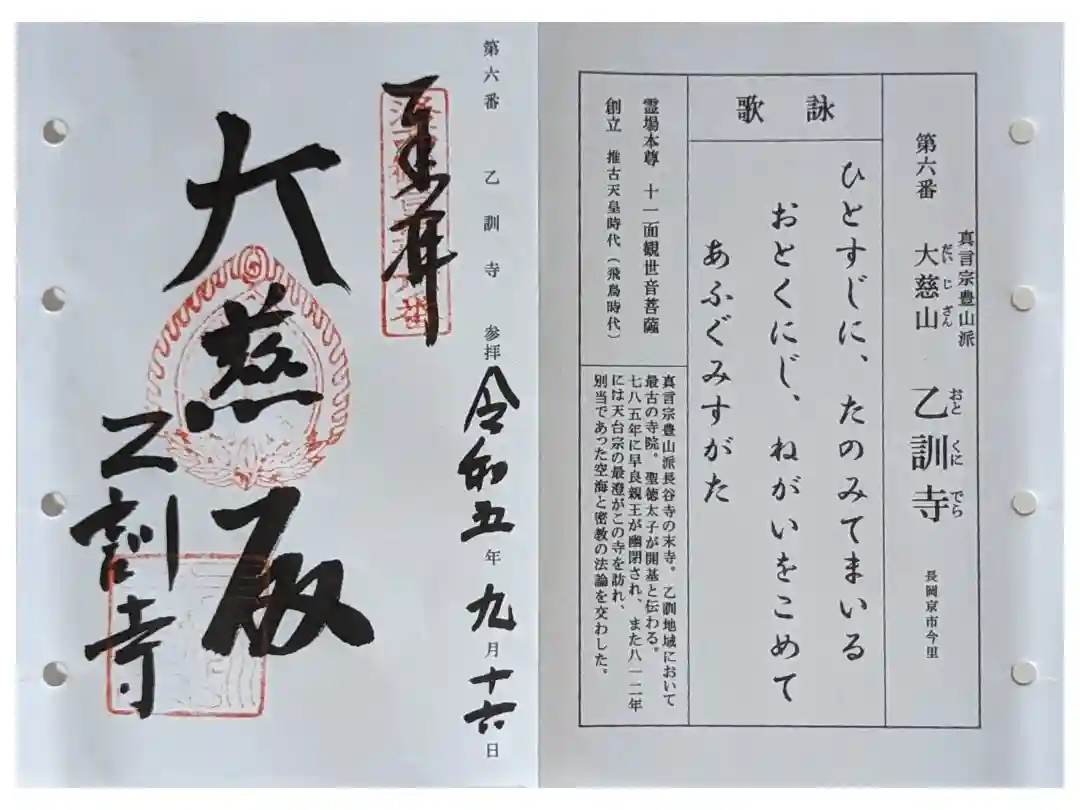 第六番 乙訓寺 参拝 令和五年九月十六日
奉拝
大慈殿
乙訓寺
第六番 真言宗豊山派 大慈山 乙訓寺 長岡京市今里
だいじざん
おとくにでら
詠歌
ひとすじに、たのみてまいる
おとくにじ、ねがいをこめて
あふぐみすがた
霊場本尊 十一面観世音菩薩
創立 推古天皇時代(飛鳥時代)
真言宗豊山派長谷寺の末寺。乙訓地域において
最古の寺院。聖徳太子が開基と伝わる。
七八五年に早良親王が幽閉され、また八一二年
には天台宗の最澄がこの寺を訪れ、
別当であった空海と密教の法論を交わした。